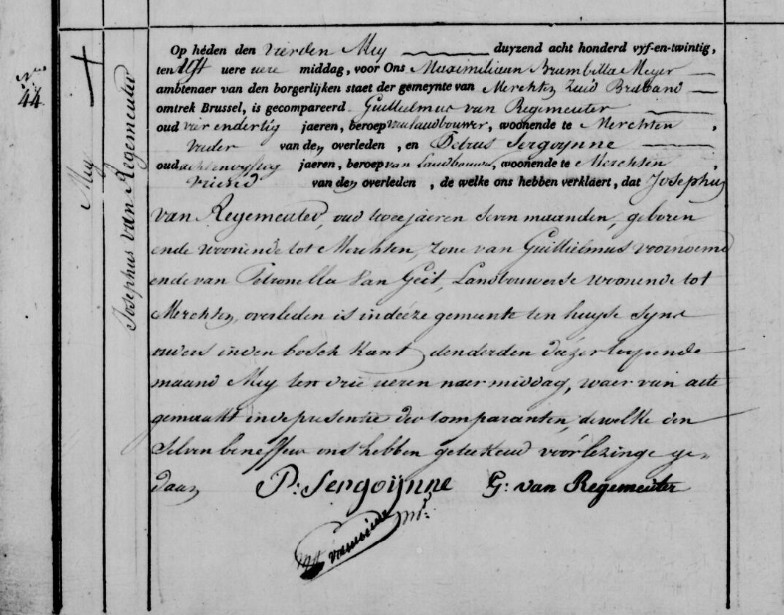 N.º 44
Mey
Josephus van Regemeuter
Op heden den vierden Mey duyzend acht honderd vyf-en-twintig,
ten elf uere voor middag, voor Ons Maximiliaen Brambilla Meyer
ambtenaer van den borgerlijken staet der gemeynte van Merchten Zuid Braband
omtrek Brussel, is gecompareerd Guillielmus van Regemeuter
oud vier endertig jaeren, beroep van landbouwer, woonende te Merchten,
vader van den overleden, en Petrus Sergoijnne
oud jaeren, beroep van Landbouwer, woonende te Merchten
vriend van den overleden, de welke ons hebben verklaert, dat Josephus
van Regemeuter, oud twee jaeren seven maanden, geboren
ende woonende tot Merchten, zone van Guillielmus voornoemd
ende van Petronella Van Geit, Landbouwerse woonende tot
Merchten, overleden is in deéze gemeente ten huyse syne
ouders in den bosch kant, den derden dezer loopende
maand Mey ten drie ueren naer middag, waer van acte
gemaekt in de presentie der comparanten, dewelke den
Selven beneffens ons hebben geteekend voór lezinge ge-
daan
P: Sergoijnne G: van Regemeuter